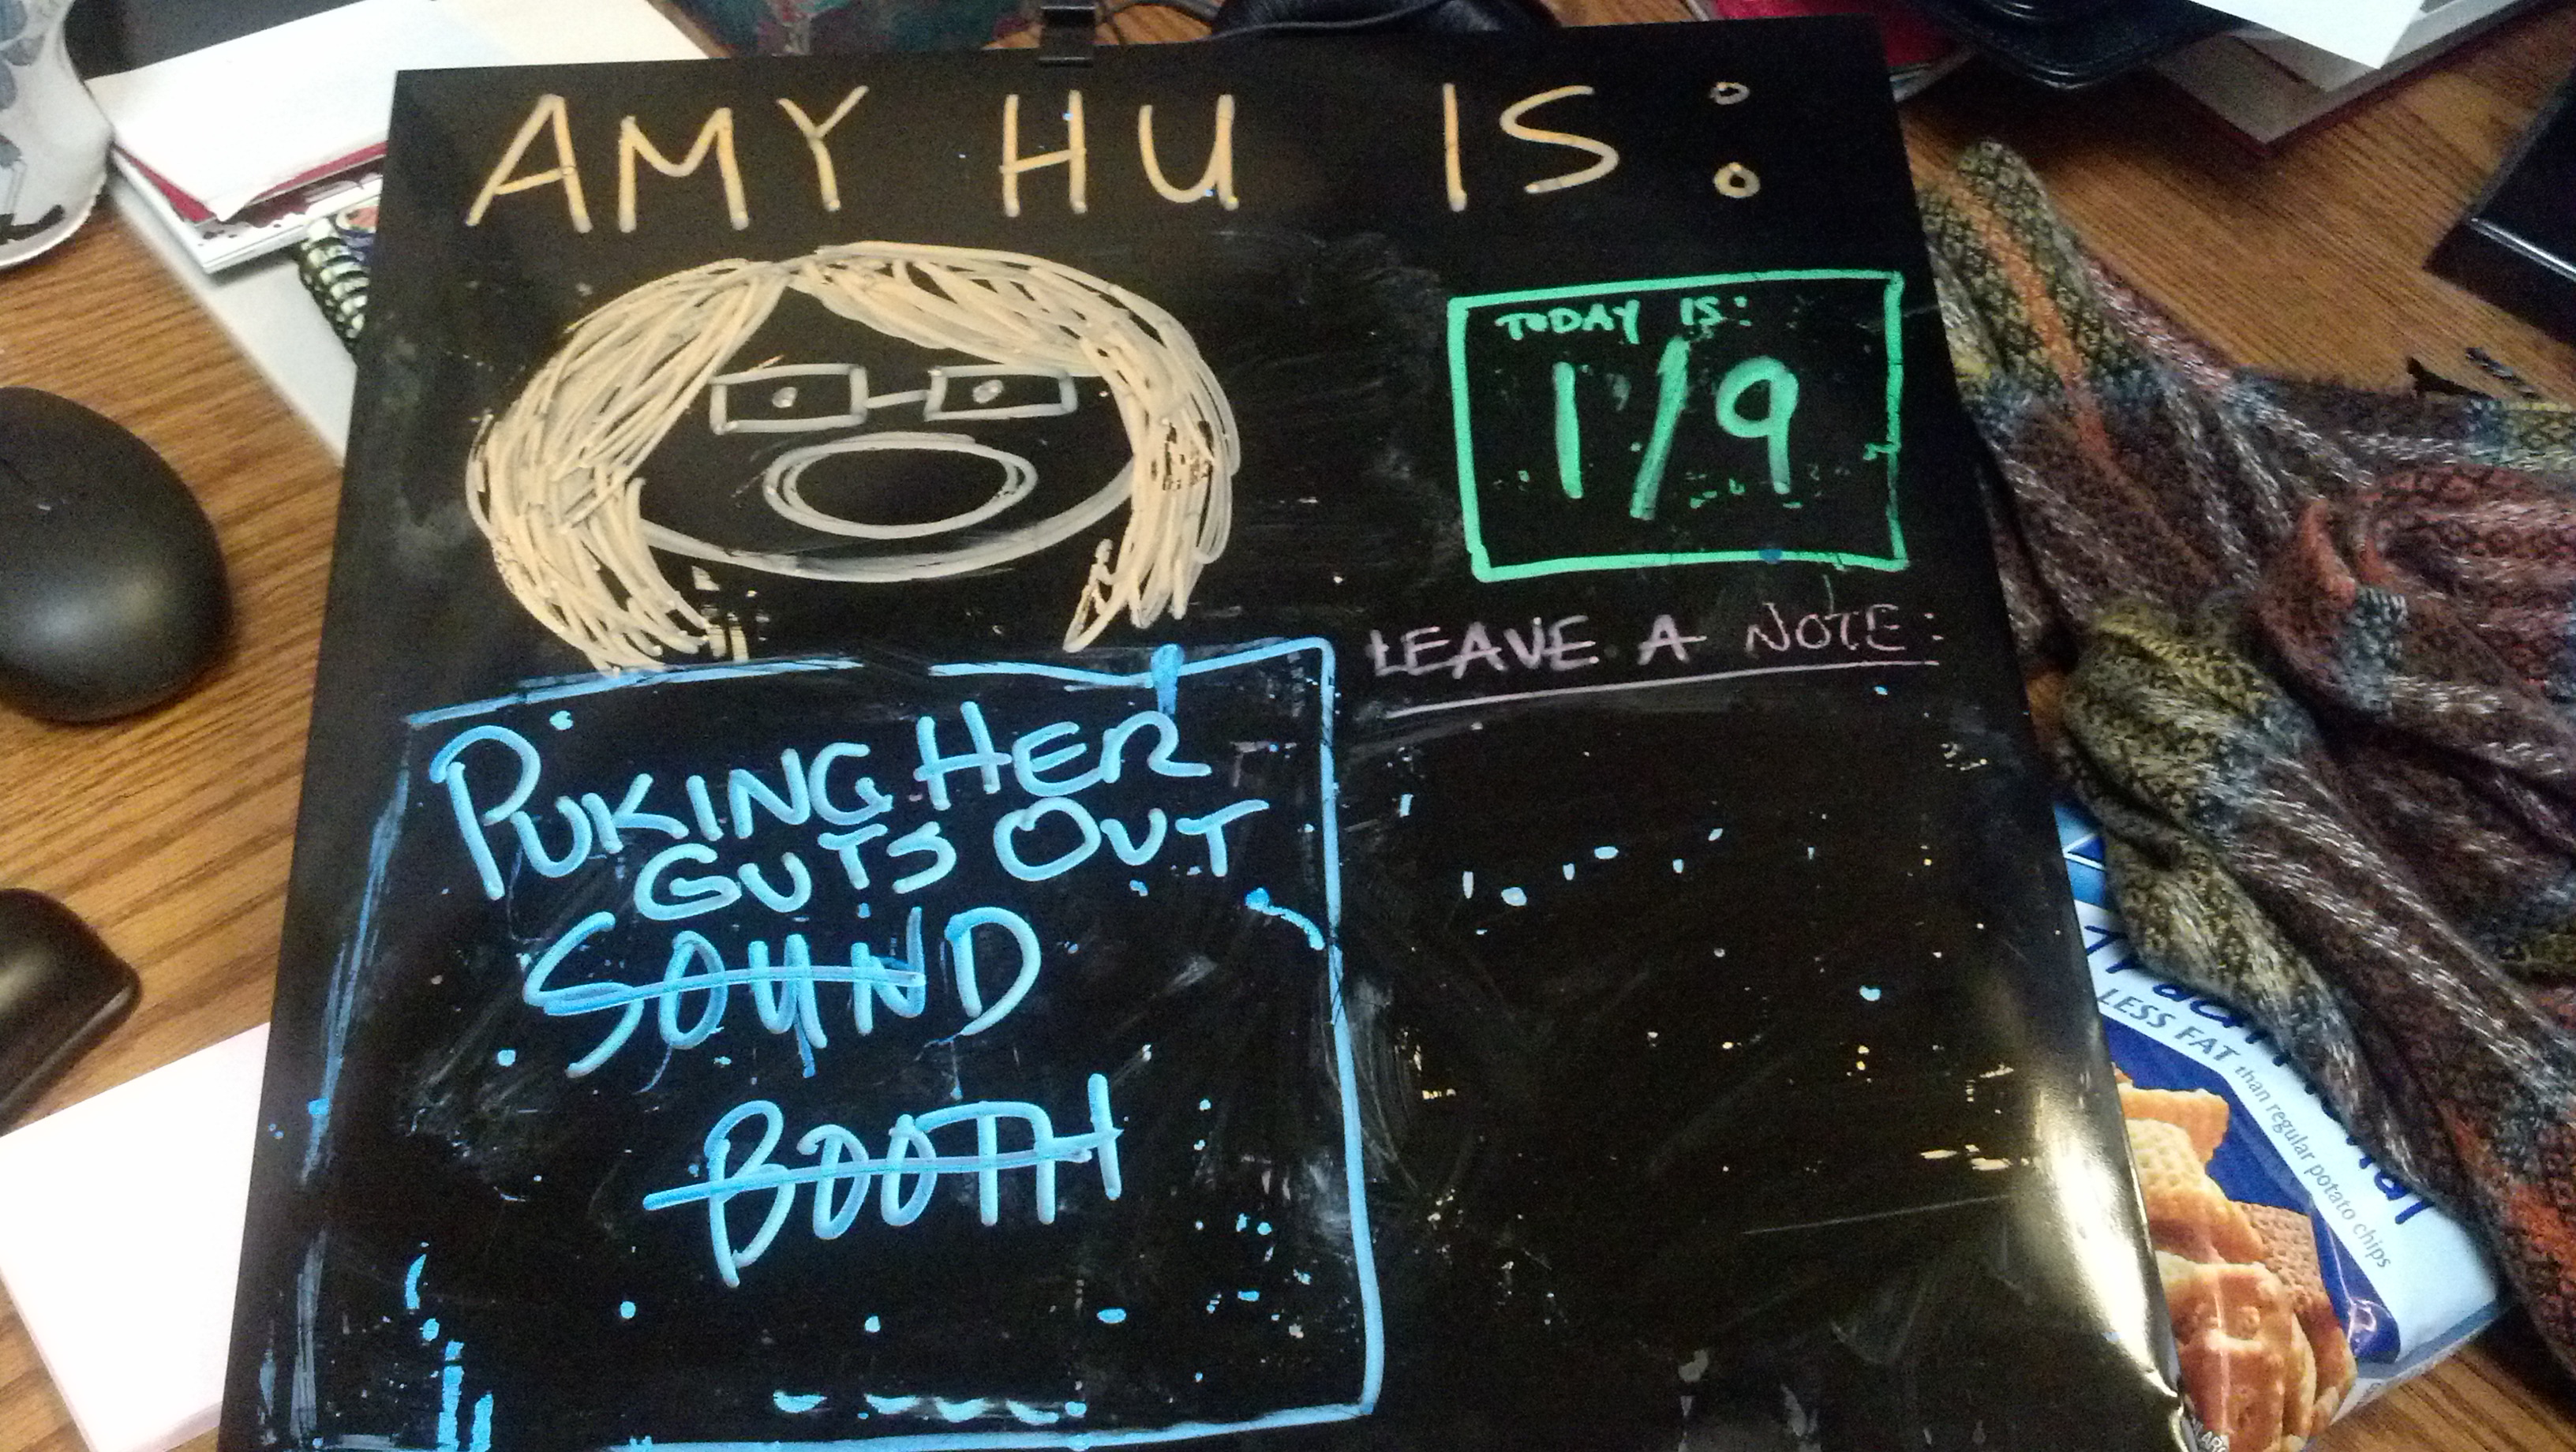 AMY HU IS:
TODAY IS:
1/9
LEAVE A NOTE:
PUKING HER
GUTS OUT
SOUND
BOOTH
LESS FAT than regular potato chips